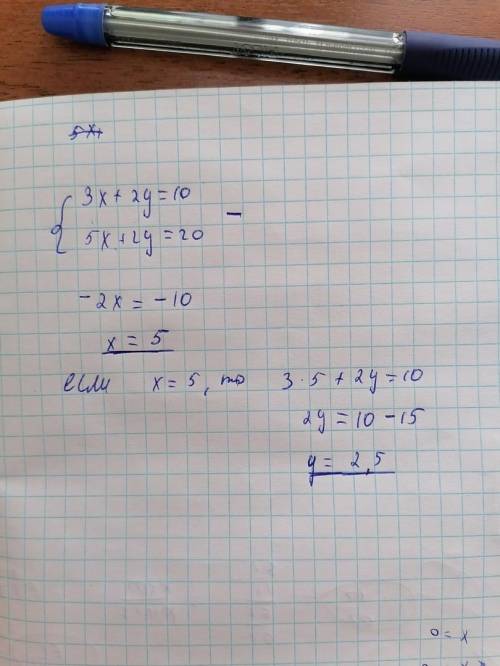 3x + 2y = 10
5x + 2y = 20 -
-2x = -10
x = 5
если x = 5, то 3 · 5 + 2y = 10
2y = 10 - 15
y = 2,5
0 = x